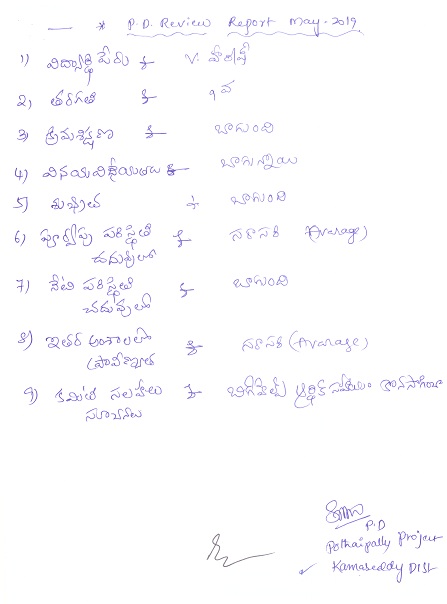 * P.D. Review Report May-2019
1) విద్యార్థి పేరు :- V. హర్షి
2) తరగతి :- 9 వ
3) క్రమశిక్షణ :- బాగుంది
4) వినయవిధేయతలు :- బాగున్నాయి
5) శుభ్రత :- బాగుంది
6) పూర్వపు పరిస్థితి :- సరాసరి (Average)
చదువులో
7) నేటి పరిస్థితి :- బాగుంది
చదువులో
8) ఇతర అంశాలలో :- సరాసరి (Average)
ప్రావీణ్యత
9) కమిటి సలహాలు :- బిగ్ హెల్ప్ ఆర్థిక సహాయం
సూచనలు
P.D
Pothaipally Project
Kamareddy Dist